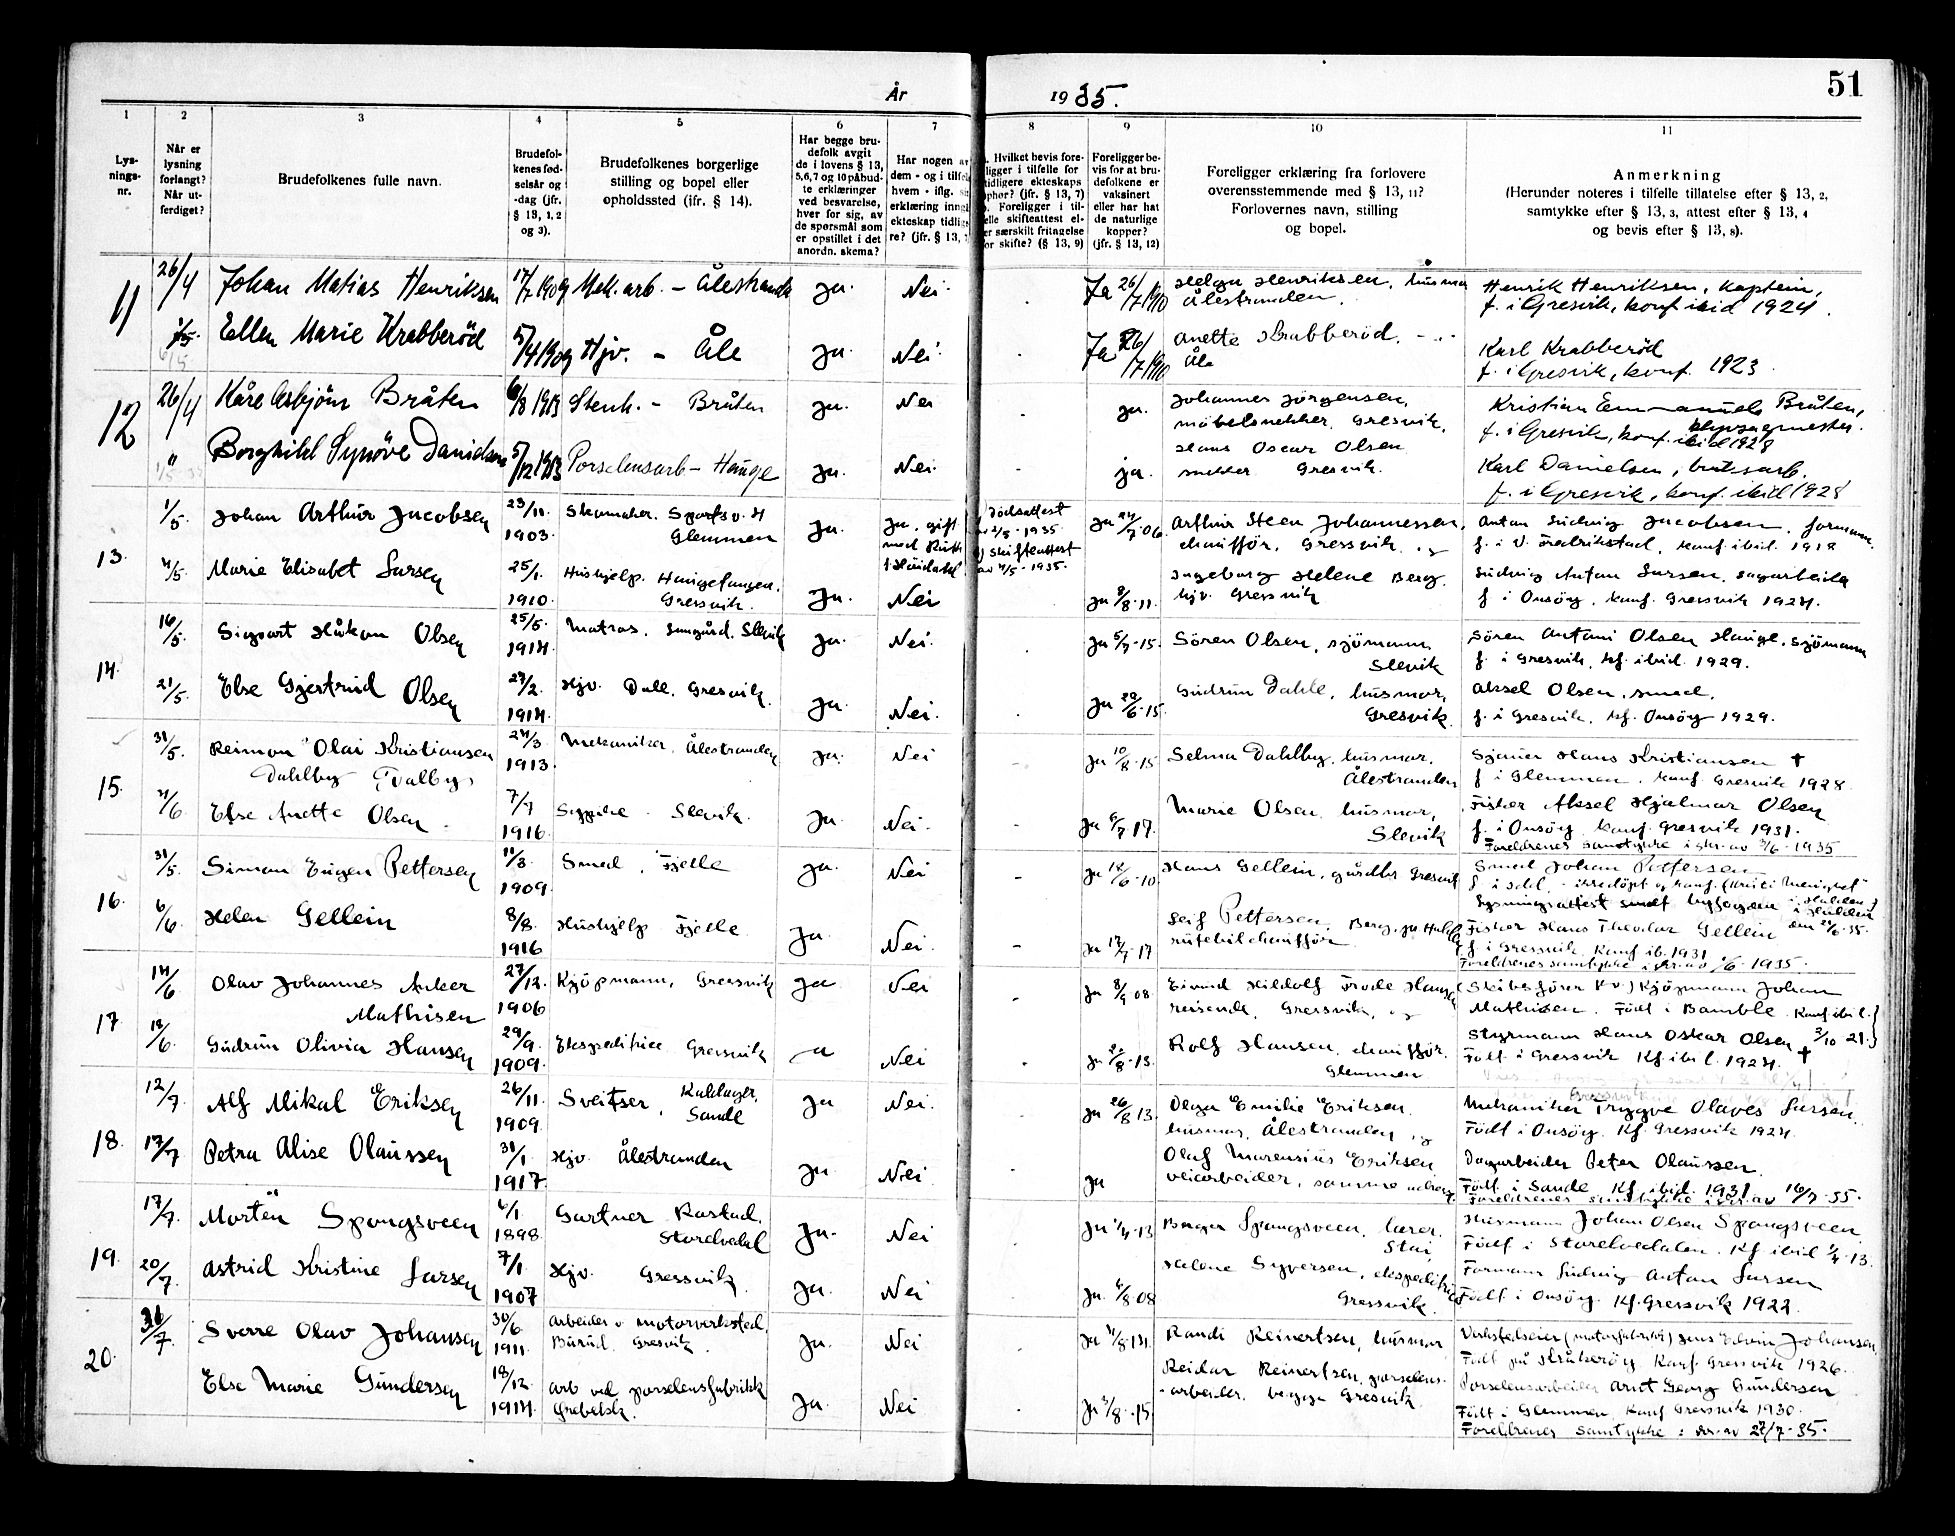 År 1935.
51
1
2
3
4
5
6
7
8
9
10
11
Lys-
nings-
nr.
Når er
lysning
forlangt?
Når ut-
ferdiget?
Brudefolkenes fulle navn.
Brudefol-
kenes fød-
selsår og
-dag (jfr.
§ 13, 1, 2
og 3).
Brudefolkenes borgerlige
stilling og bopel eller
opholdssted (ifr. § 14).
Har begge bru-
defolk avgit
de i lovens § 13,
5, 6, 7 og 10 påbud-
te erklæringer
ved besvarelse,
hver for sig, av
de spørsmål som
er opstillet i det
anordn. skema?
Har nogen av
dem - og i tilfe
hvem - iflg.
erklæring inng
ekteskap tidlig
re? (jfr. § 13,
Hvilket bevis fore-
ligger i tilfelle for
tidligere ekteskaps
ophør? (jfr. § 13, 7)
Foreligger i til-
elle skifteattest el-
er særskilt fritagelse
for skifte? (§ 13, 9)
Foreligger be-
vis for at bru-
defolkene er
vaksinert
eller har hat
de naturlige
kopper?
(jfr. § 13, 12)
Foreligger erklæring fra forlovere
overensstemmende med § 13, 11?
Forlovernes navn, stilling
og bopel.
Anmerkning
(Herunder noteres i tilfelle tillatelse efter § 13, 2,
samtykke efter § 13, 3, attest efter § 13, 4
og bevis efter § 13, 8).
11 26/4 Johan Matias Henriksen 17/7 1909 Mek. arb. - Ålestrand Ja. Nei - Ja 26/7 1910 Helga Henriksen, husmor Ålestranden. Henrik Henriksen, kaptein,
f. i Gresvik, konf. ibid 1924.
Ellen Marie Krabberöd 5/4 1909 Hjv. - Åle Ja. Nei - Ja 26/7 1910 Anette Krabberöd. - " - Åle Karl Krabberöd
f. i Gresvik, konf. 1923.
12 26/4 Kåre Asbjörn Bråten 6/8 1913 Stenh. - Bråten Ja. Nei - ja. Johannes Jörgensen,
möbelsnekker, Gresvik. Kristian Emanuels Bråten,
f. i Gresvik, konf. ibid 1928
" Borghild Synöve Danielsen 5/12 1913 Porselensarb - Hauge Ja. Nei - ja. Hans Oscar Olsen
snekker Gresvik. Karl Danielsen, bruksarb.
f. i Gresvik, konf. ibid 1928
13. 1/5 Johan Arthur Jacobsen 23/11. 1903. Skomaker. Glemmen Ja. Ja, gift
med Ruth
Dödsattest
1935
b) Skifteattest
av 4/5 - 1935. Ja 24/7 06. Arthur Steen Johannessen,
chaufför, Gressvik. og Anton Ludvig Jacobsen, formann.
f. i V. Fredrikstad, konf. ibid. 1918
4/5. Marie Elisabet Larsen 25/1. 1910. Hushjelp.
Gressvik. Ja. Nei Ja 8/8.11. Ingeborg Helene Berg.
hjv. Gressvik Ludvig Anton Larsen, sagarbeider
f. i Onsöy, konf. Gressvik 1924.
14. 16/5. Sigvart Håkon Olsen 25/5. 1914. Matros. Slevik Ja. Nei. Ja 5/7-15 Sören Olsen, sjömann
Slevik Sören Antoni Olsen Hauge, sjömann
f. i Gresvik, kf. ibid. 1929.
21/5. Else Gjertrud Olsen 27/2. 1914. Hjv. Dale, Gresvik. Ja. Nei. Ja 29/6-15. Gudrun Dahle, husmor,
Gresvik. Aksel Olsen, smed.
f. i Gresvik, kf. Onsöy 1929.
15. 31/5. Reimon Olai Kristiansen
Dahlby (Dalby) 24/3. 1913. Mekaniker, Ålestranden Ja. Nei Ja 10/8-15 Selma Dahlby, husmor.
Ålestranden Hans Kristiansen †
f i Glemmen, konf Gresvik 1928.
4/6. Else Anette Olsen. 7/7 1916. Sypike Slevik. Ja. Nei. - Ja 6/7 17. Marie Olsen, husmor,
Slevik Fisker Aksel Hjalmar Olsen
f. i Onsöy, konf. Gresvik 1931.
Foreldrenes samtykke i skr. av 3/6 - 1935
16. 31/5. Simon Eugen Pettersen 11/3. 1909. Smed, Fjelle Ja. Nei - Ja 12/6-10. Hans Gellein, gårdbr. Gresvik Smed Johan Pettersen
6/6. Helen Gellein 8/8. 1916 Hushjelp Fjelle Ja. Nei. - Ja 17/7-17 Leif Pettersen, Berg
rutebilchaufför Fisker Hans Theodor Gellein
f. i Gressvik Konf ib. 1931
Foreldrenes samtykke i skr. av 1/6 - 1935.
17 14/6 Olav Johannes Anker
Mathisen 27/12. 1906 Kjöpmann, Gressvik Ja Nei - Ja 8/9 08. Eivind Hildolf Frode Hansen
reisende, Gressvik, og (Skibsförer Kv.) Kjöpmann Johan
Mathisen. Födt i Bamble. Konf ibid. 3/10 21.
18/6. Gudrun Olivia Hansen 29/9. 1909. Ekspeditrice Gressvik Ja Nei Rolf Hansen, chaufför.
Glemmen Styrmann Hans Oskar Olsen †
Födt i Gressvik Kf. ibid. 1924.
18. 12/7 Alf Mikal Eriksen 26/11. 1909. Sveitser, Sande Ja Nei. Ja 26/8 13. Olga Emilie Eriksen.
husmor, Ålestranden og Mekaniker Tryggve Olaves Larsen.
Födt i Onsöy. Kf. Gressvik 1924.
17/7. Petra Alise Olaussen 31/1. 1917. Hjv. Ålestranden Ja Nei Ja Olaf Marensius Eriksen
veiarbeider, samme Dagarbeider Peter Olaussen.
Födt i Sande Kf. ibid. 1931
Foreldrenes samtykke i skr. av 16/7-35.
19. 17/7. Morten Spangsveen 6/1. 1898. Gartner Rastad.
Storelvedal Ja. Nei Ja 1/4-13 Birger Spangsveen, lærer.
Stai Johan Olsen Spangsveen
Födt i Storelvedalen. Kf ibid 1/4-13.
20/7. Astrid Kristine Larsen 7/1. 1907 Hjv. Gressvik. Ja. Nei Ja. 6/8 08 Halene Syversen, ekspeditrice
Gressvik. Formann Ludvig Anton Larsen
Födt i Onsöy. Kf. Gressvik 1922.
20. 31/7. Sverre Olav Johansen 30/6. 1911. Arbeider v. motorverksted,
Burud, Gresvik. Ja. Nei Ja 4/8-14. Randi Reinertsen, husmor Verkstedseier (motorfabrikk) Jens Edvin Johansen
Födt på Kråkeröy Konf. Gressvik 1926.
Else Marie Gundersen 18/12. 1914. Arb ved porselensfabrikk Ja. Nei Ja 3/8-15. Reidar Reinertsen, porselens-
arbeider, begge Gresvik. Porselensarbeider Arnt Georg Gundersen
Födt i Glemmen, Konf Gressvik 1930.
Foreldrenes samtykke i skr. av 27/7-35.